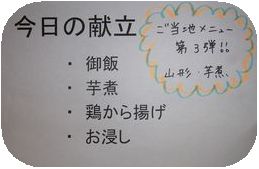 今日の献立
・ 御飯
・ 芋煮
・ 鶏から揚げ
・ お浸し
ご当地メニュー
第3弾!!
山形・芋煮、